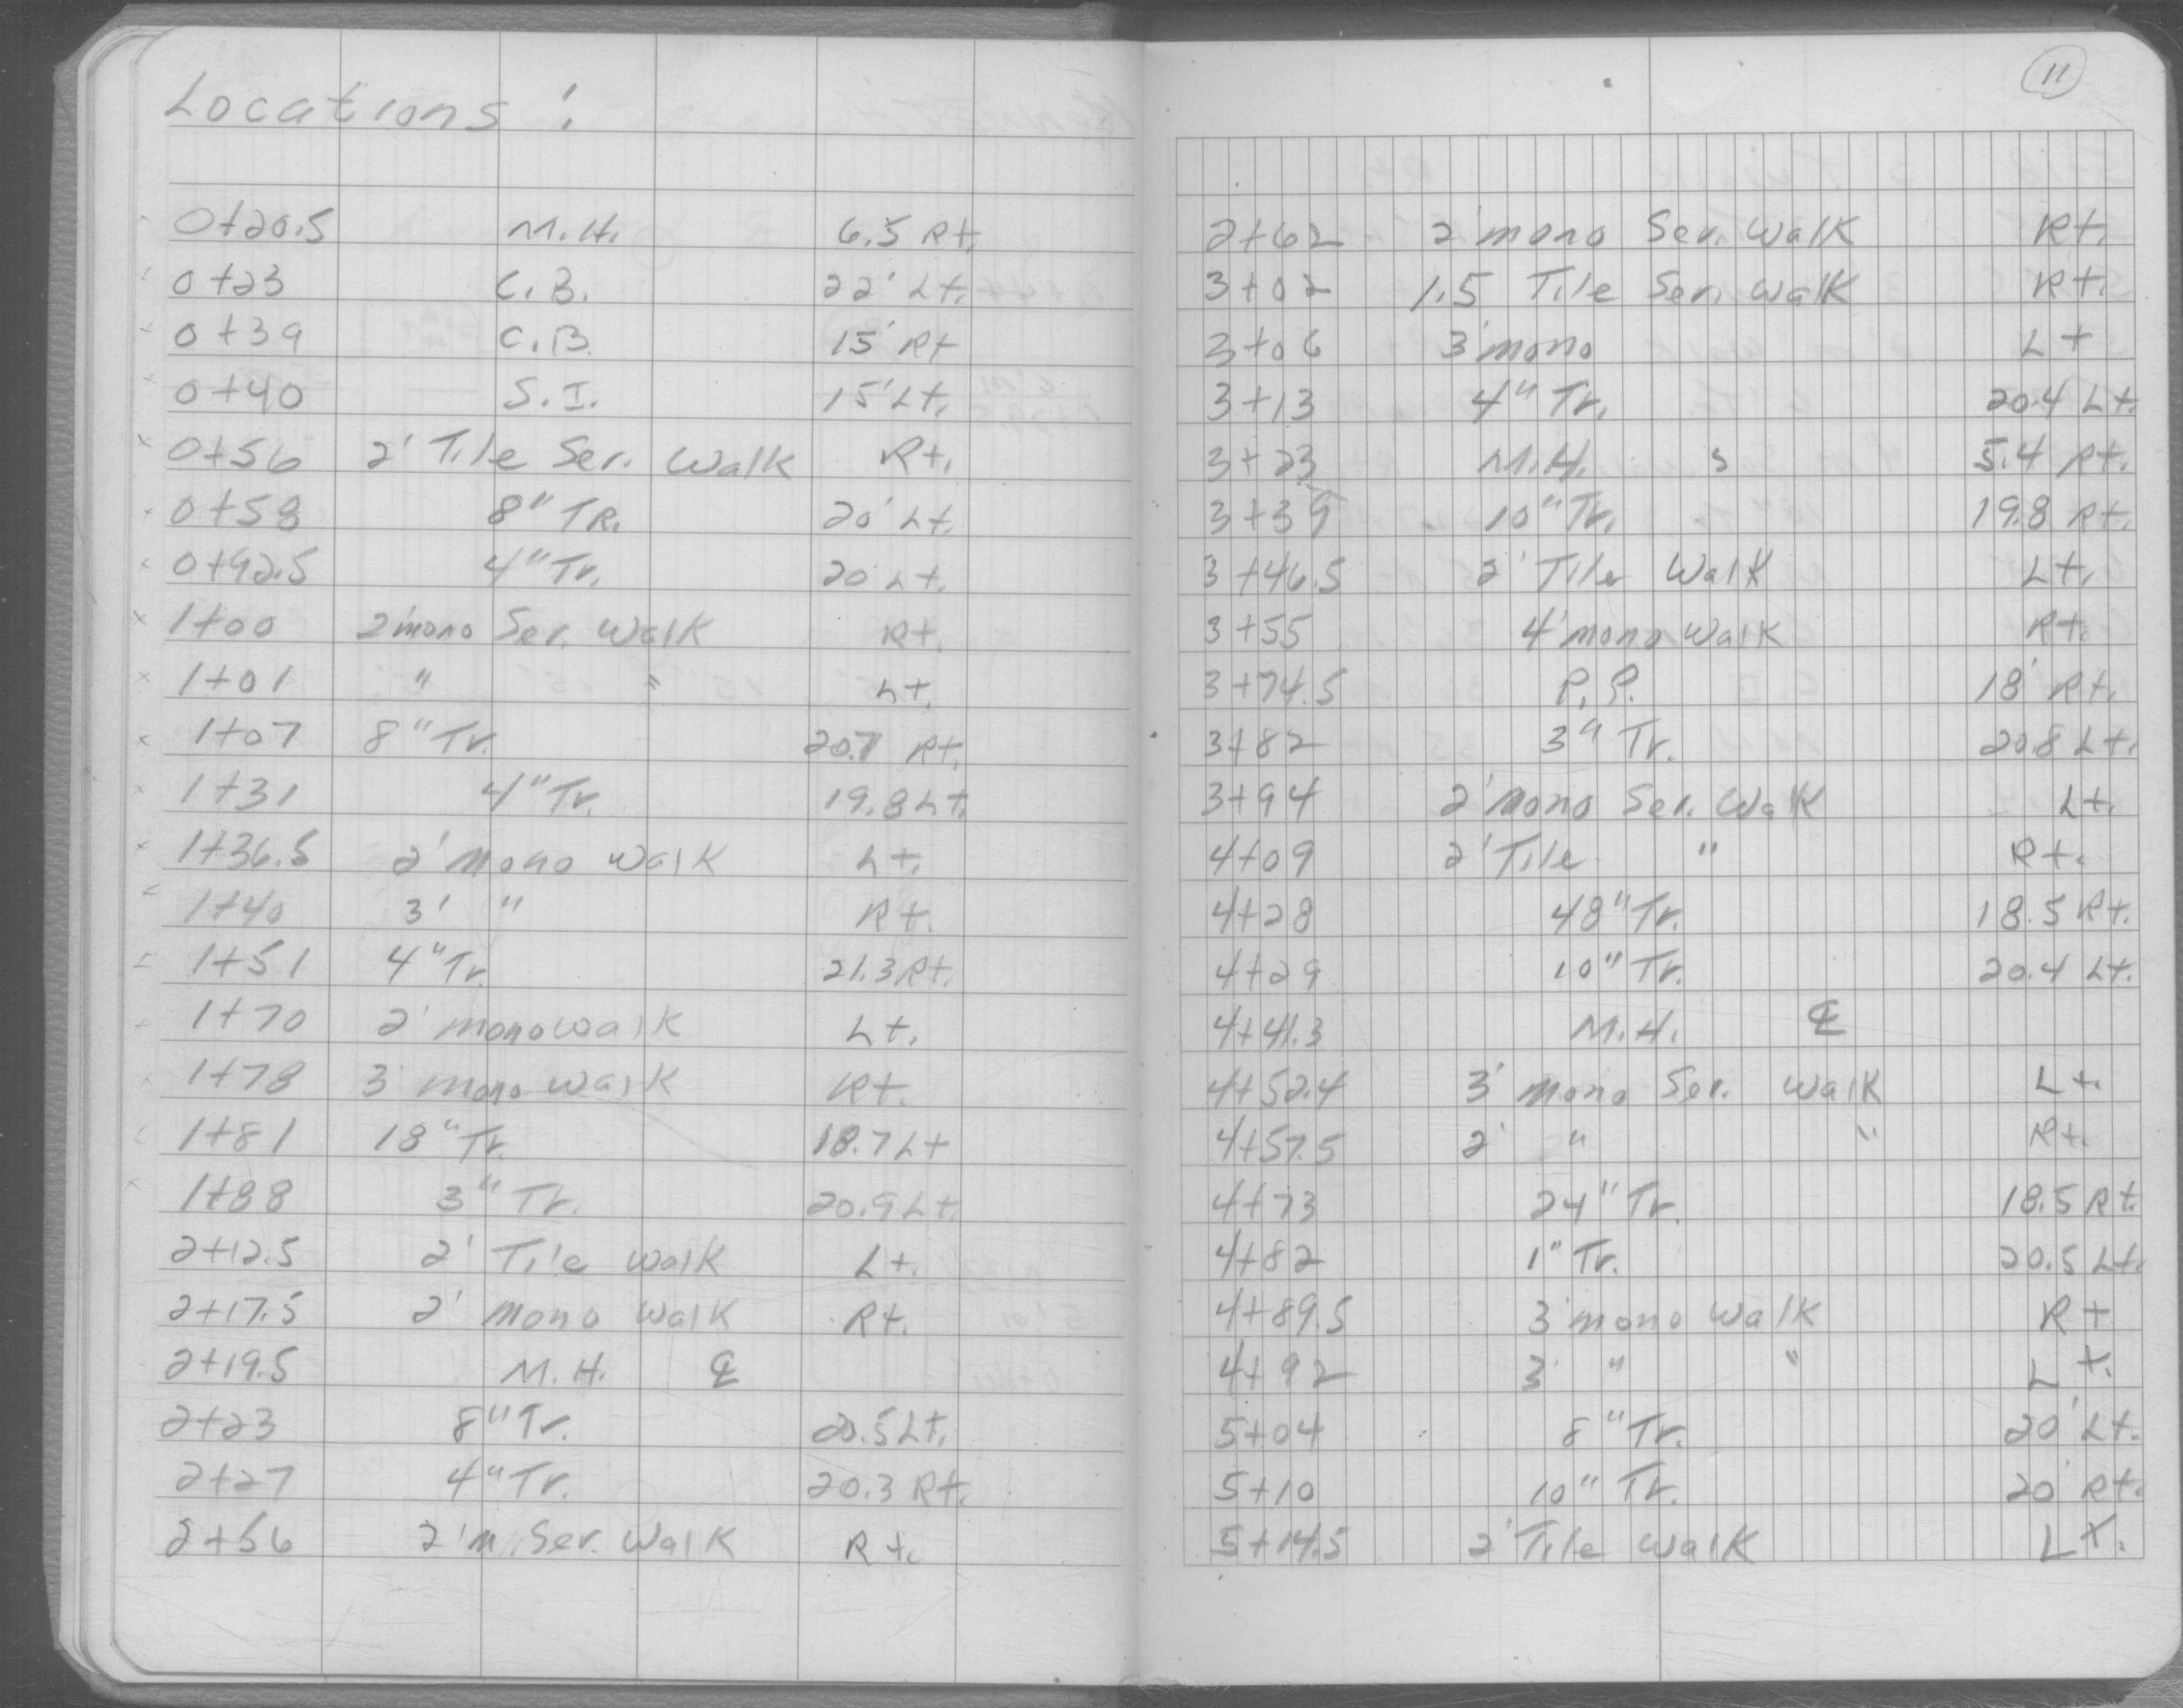 Locations :
0+20.5 M.H. 6.5 Rt.
0+23 C.B. 22' Lt.
0+39 C.B. 15' Rt
0+40 S.I. 15' Lt.
0+56 2' Tile Ser. Walk Rt.
0+58 8" TR. 20' Lt.
0+92.5 4" Tr. 20 Lt.
1+00 2'mono Ser. Walk Rt.
1+01 " " Lt.
1+07 8" Tr. 20.7 Rt.
1+31 4" Tr. 19.8 Lt.
1+36.5 2' mono walk Lt.
1+40 3' " Rt.
1+51 4" Tr. 21.3 Rt.
1+70 2' mono walk Lt.
1+78 3' mono walk Rt.
1+81 18" Tr. 18.7 Lt
1+88 3" Tr. 20.9 Lt.
2+12.5 2' Tile walk Lt.
2+17.5 2' mono walk Rt.
2+19.5 M.H. ℄
2+23 8" Tr. 20.5 Lt.
2+27 4" Tr. 20.3 Rt.
2+56 2'm. Ser. Walk Rt.
11
2+62 2' mono Ser. Walk Rt.
3+02 1.5 Tile Ser. Walk Rt.
3+06 3' mono Lt
3+13 4" Tr. 20.4 Lt.
3+23 M.H. 5.4 Rt.
3+39 10" Tr. 19.8 Rt.
3+46.5 2' Tile Walk Lt.
3+55 4' mono Walk Rt.
3+74.5 P.P. 18' Rt.
3+82 3" Tr. 20.8 Lt.
3+94 2' mono Ser. Walk Lt.
4+09 2' Tile " Rt.
4+28 48" Tr. 18.5 Rt.
4+29 10" Tr. 20.4 Lt.
4+41.3 M.H. ℄
4+52.4 3' mono Ser. Walk Lt.
4+57.5 2' " " Rt.
4+73 24" Tr. 18.5 Rt.
4+82 1" Tr. 20.5 Lt.
4+89.5 3' mono Walk Rt
4+92 3' " " Lt.
5+04 8" Tr. 20' Lt.
5+10 10" Tr. 20' Rt.
5+14.5 2' Tile Walk Lt.